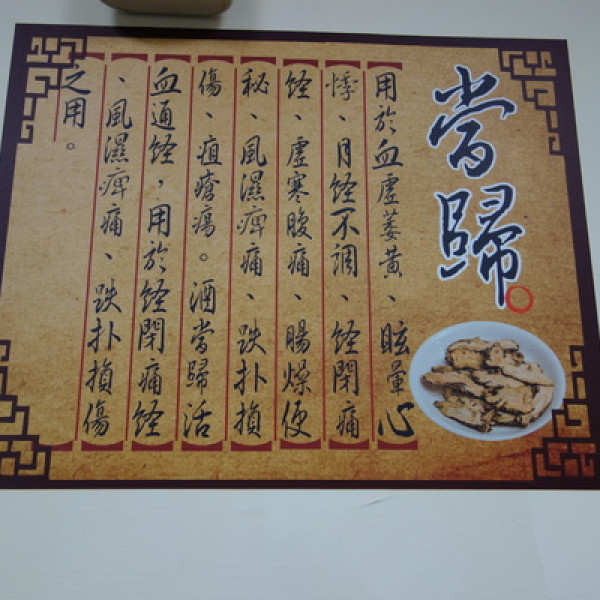 當歸
用於血虛萎黃、眩暈心
悸、月經不調、經閉痛
經、虛寒腹痛、腸燥便
秘、風濕痺痛、跌扑損
傷、疽瘡瘍。酒當歸活
血通經，用於經閉痛經
、風濕痺痛、跌扑損傷
之用。